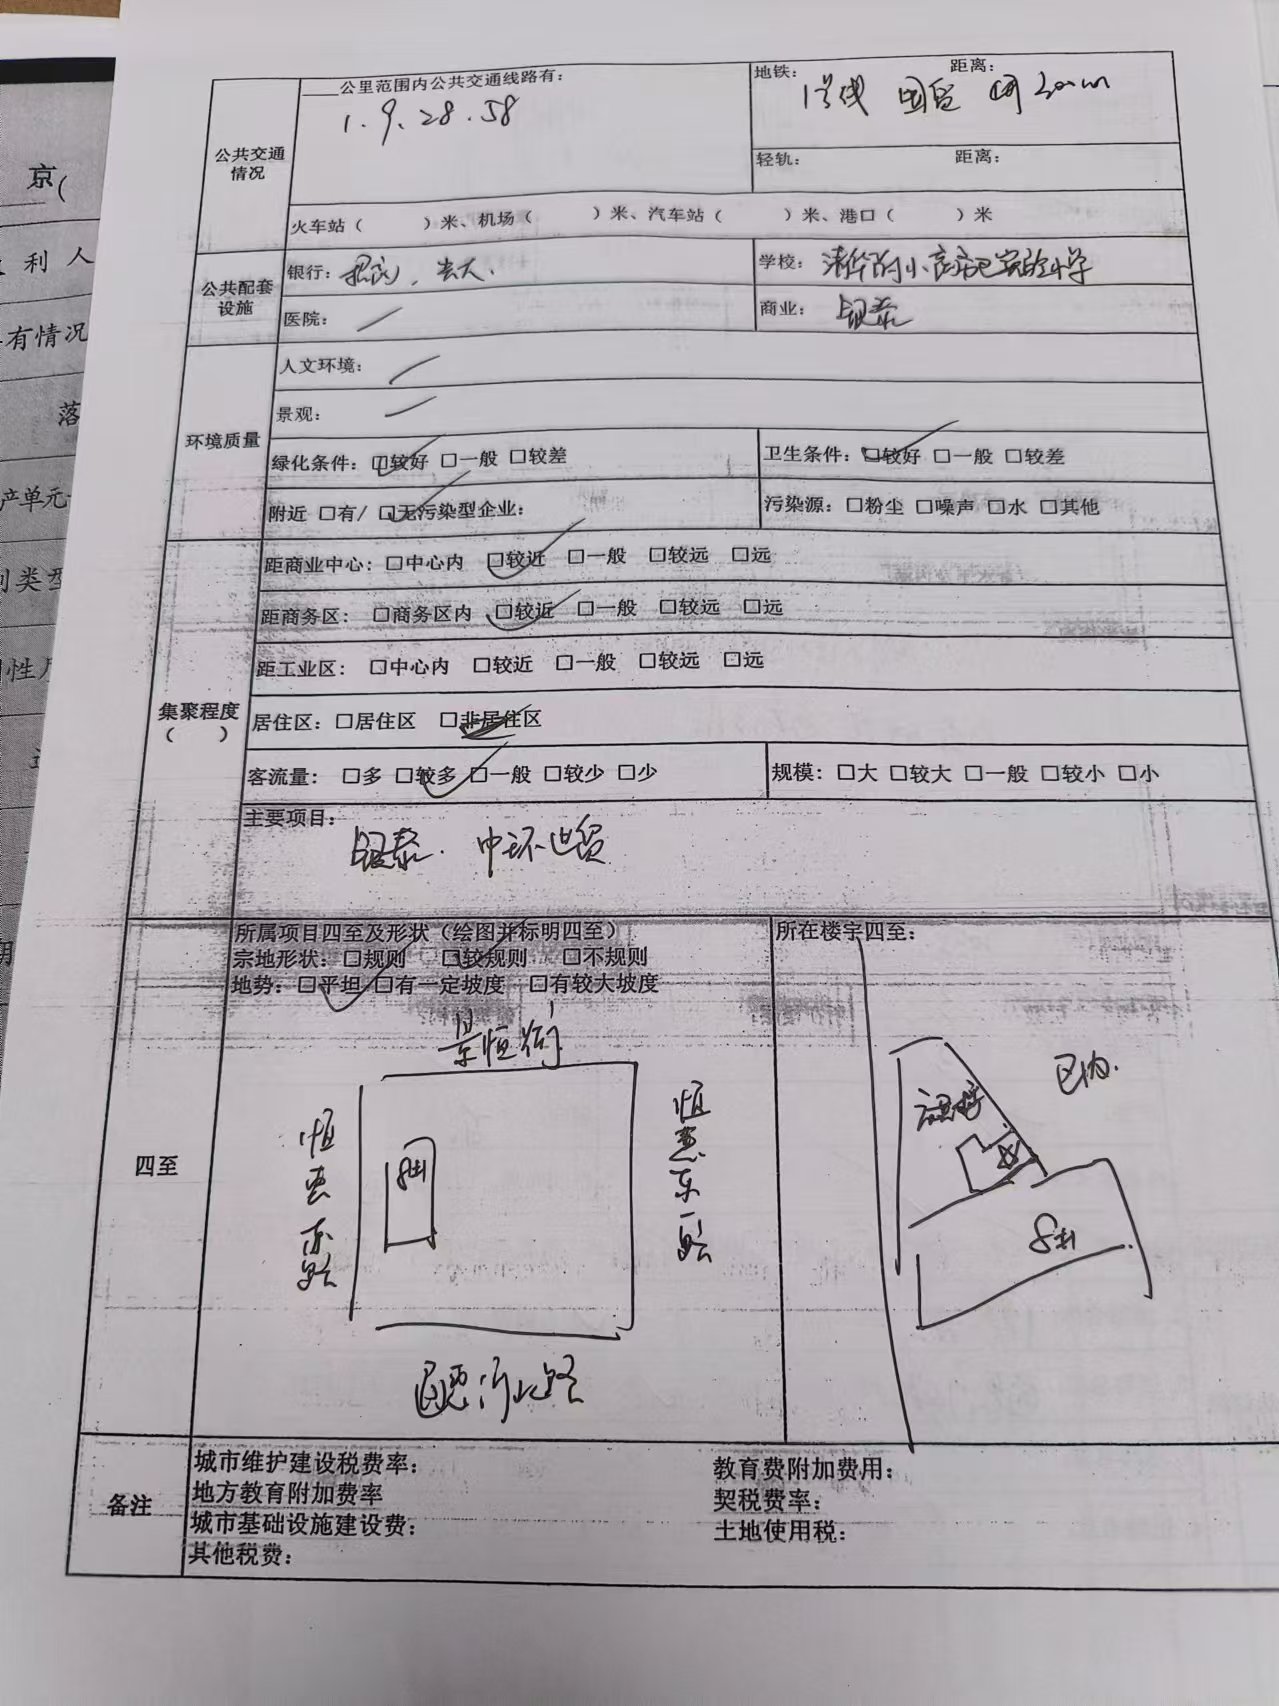 京(
利人
有情况
落
产单元
类型
性质
____公里范围内公共交通线路有：
1.9.28.58
地铁： 距离：
1号线 国贸 约300m
公共交通情况
轻轨： 距离：
火车站（ ）米、机场（ ）米、汽车站（ ）米、港口（ ）米
公共配套设施
银行：
学校：清华附小商务中心区实验小学
医院：／
商业：银泰
环境质量
人文环境：／
景观：／
绿化条件：☑较好 □一般 □较差
卫生条件：☑较好 □一般 □较差
附近 □有/ ☑无污染型企业：
污染源：□粉尘 □噪声 □水 □其他
集聚程度
（ ）
距商业中心：□中心内 ☑较近 □一般 □较远 □远
距商务区：□商务区内 ☑较近 □一般 □较远 □远
距工业区：□中心内 □较近 □一般 □较远 □远
居住区：□居住区 □非居住区
客流量：□多 ☑较多 □一般 □较少 □少
规模：□大 □较大 □一般 □较小 □小
主要项目：
银泰. 中环世贸
四至
所属项目四至及形状（绘图并标明四至）
宗地形状：□规则 ☑较规则 □不规则
地势：☑平坦 □有一定坡度 □有较大坡度
景恒街
恒惠西路
8#
恒惠东路
通惠河北路
所在楼宇四至：
区内.
8#
备注
城市维护建设税费率：
教育费附加费用：
地方教育附加费率
契税费率：
城市基础设施建设费：
土地使用税：
其他税费：